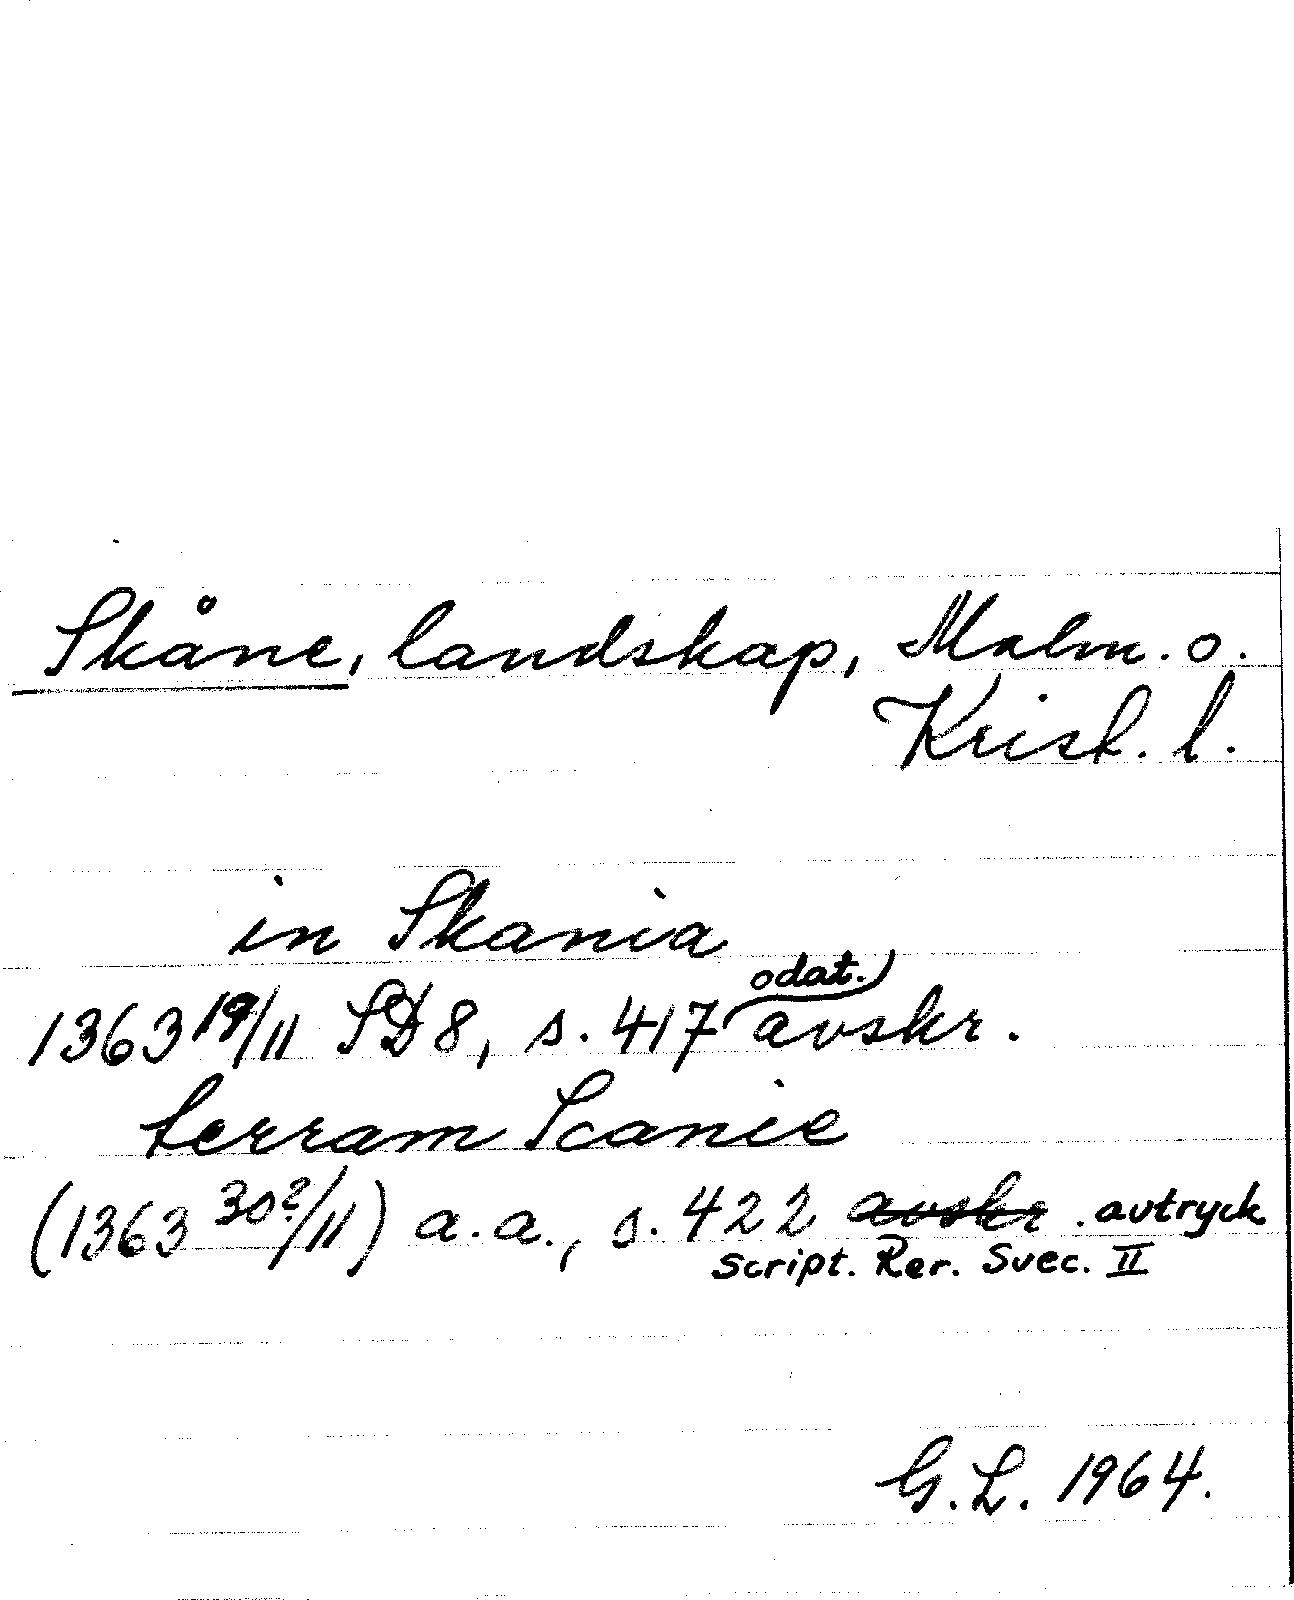 Skåne, landskap, Malm. o.
Krist. l.
in Skania
odat.)
1363 19/11 SD 8, s. 417 avskr.
terram Scanie
(1363 30?/11) a.a., s. 422 avskr. avtryck
Script. Rer. Svec. II
G.L. 1964.